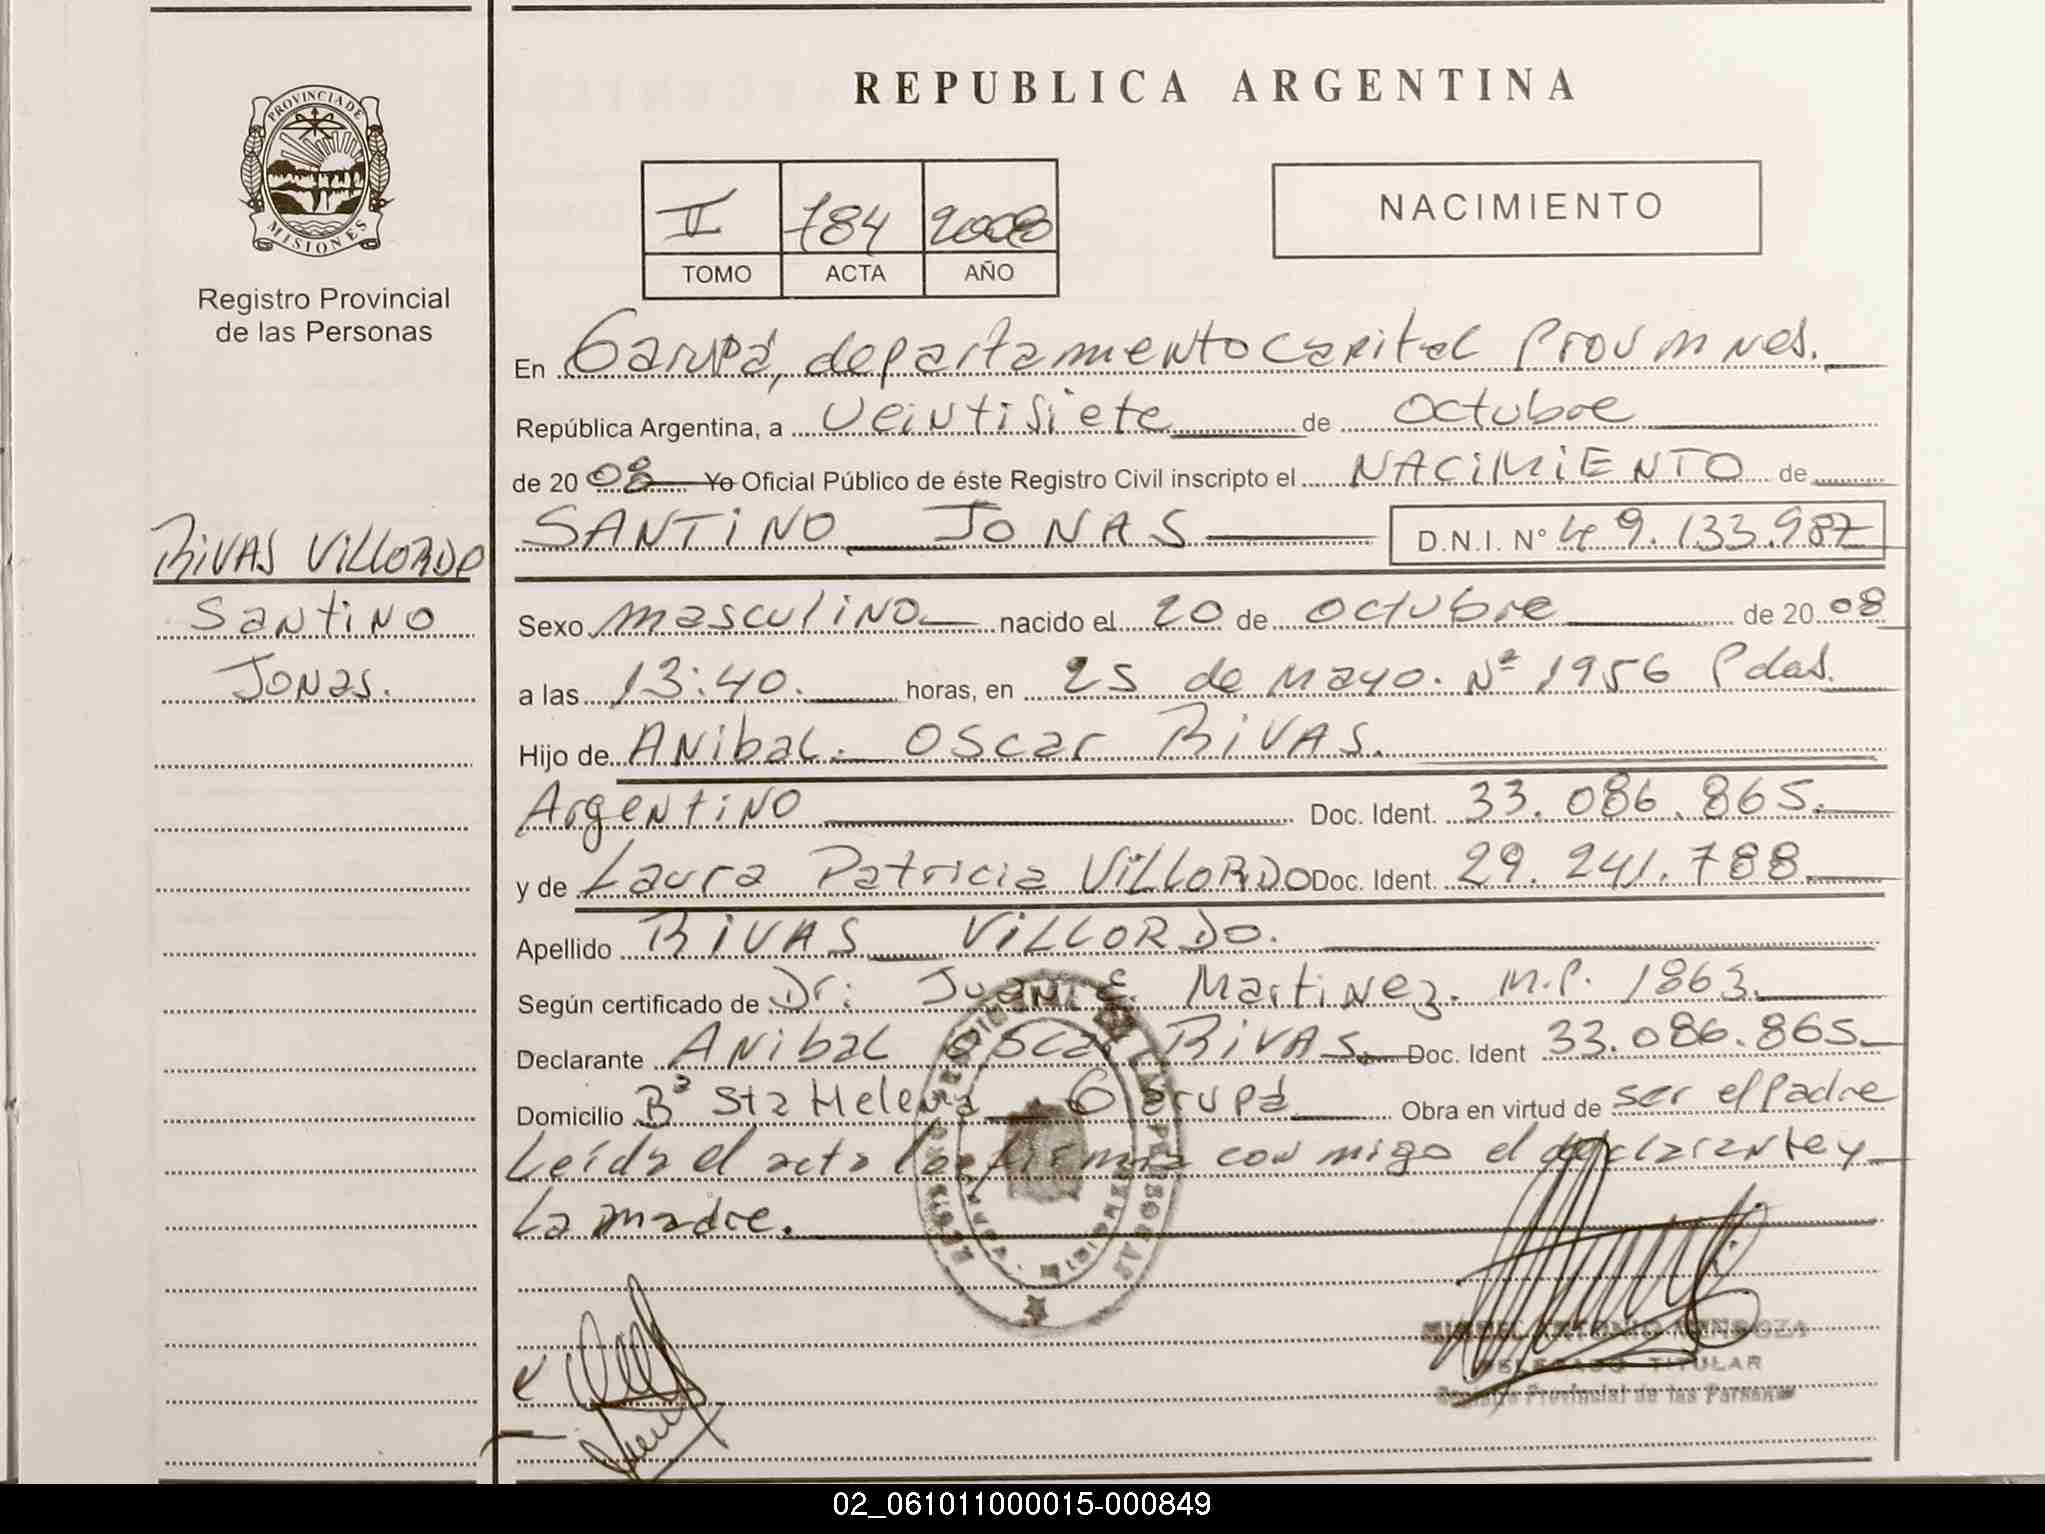 PROVINCIA DE
MISIONES
Registro Provincial
de las Personas
REPUBLICA ARGENTINA
II 784 2008
TOMO ACTA AÑO
NACIMIENTO
En Garupá, departamento Capital Prov Mnes.
República Argentina, a veintisiete de octubre
de 20 08 Yo Oficial Público de éste Registro Civil inscripto el NACIMIENTO de
RIVAS VILLORDO
Santino
Jonas.
SANTINO JONAS D.N.I. N° 49.133.987
Sexo masculino nacido el 20 de octubre de 20 08
a las 13:40. horas, en 25 de Mayo. Nº 1956 Pdas.
Hijo de Anibal. Oscar RIVAS.
Argentino Doc. Ident. 33.086.865.
y de Laura Patricia VILLORDO Doc. Ident. 29.241.788.
Apellido RIVAS VILLORDO.
Según certificado de Dr: Juan E. Martinez. M.P. 1863.
Declarante Anibal Oscar RIVAS. Doc. Ident 33.086.865.
Domicilio Bº Sta Helena Garupá Obra en virtud de ser el padre
Leída el acta la firma con migo el declarante y
La madre.
MIGUEL ANTONIO MENDOZA
DELEGADO TITULAR
Registro Provincial de las Personas
02_061011000015-000849